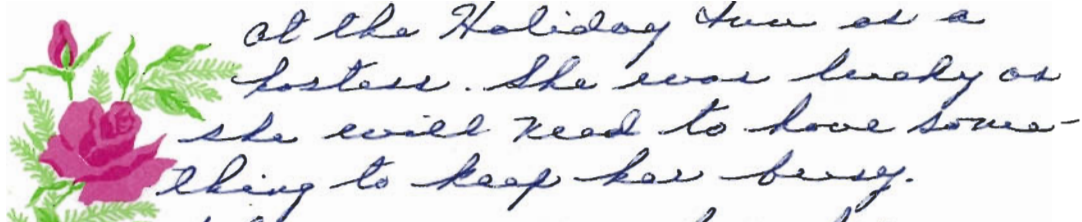 at the Holiday Inn as a
hostess. She was lucky as
she will need to have some-
thing to keep her busy.